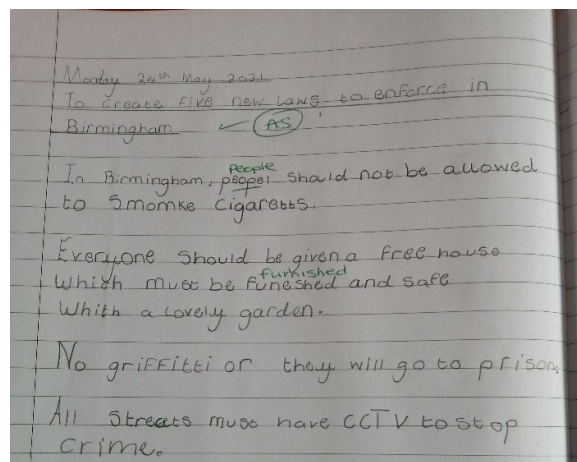 Monday 24th May 2021
To create five new laws to enforce in
Birmingham ✓ AS
People
In Birmingham, peopel should not be allowed
to Smomke cigaretts.
Everyone should be given a free house
furnished
which must be funeshed and safe
Whith a lovely garden.
No griffitti or they will go to prison.
All Streats must have CCTV to stop
crime.